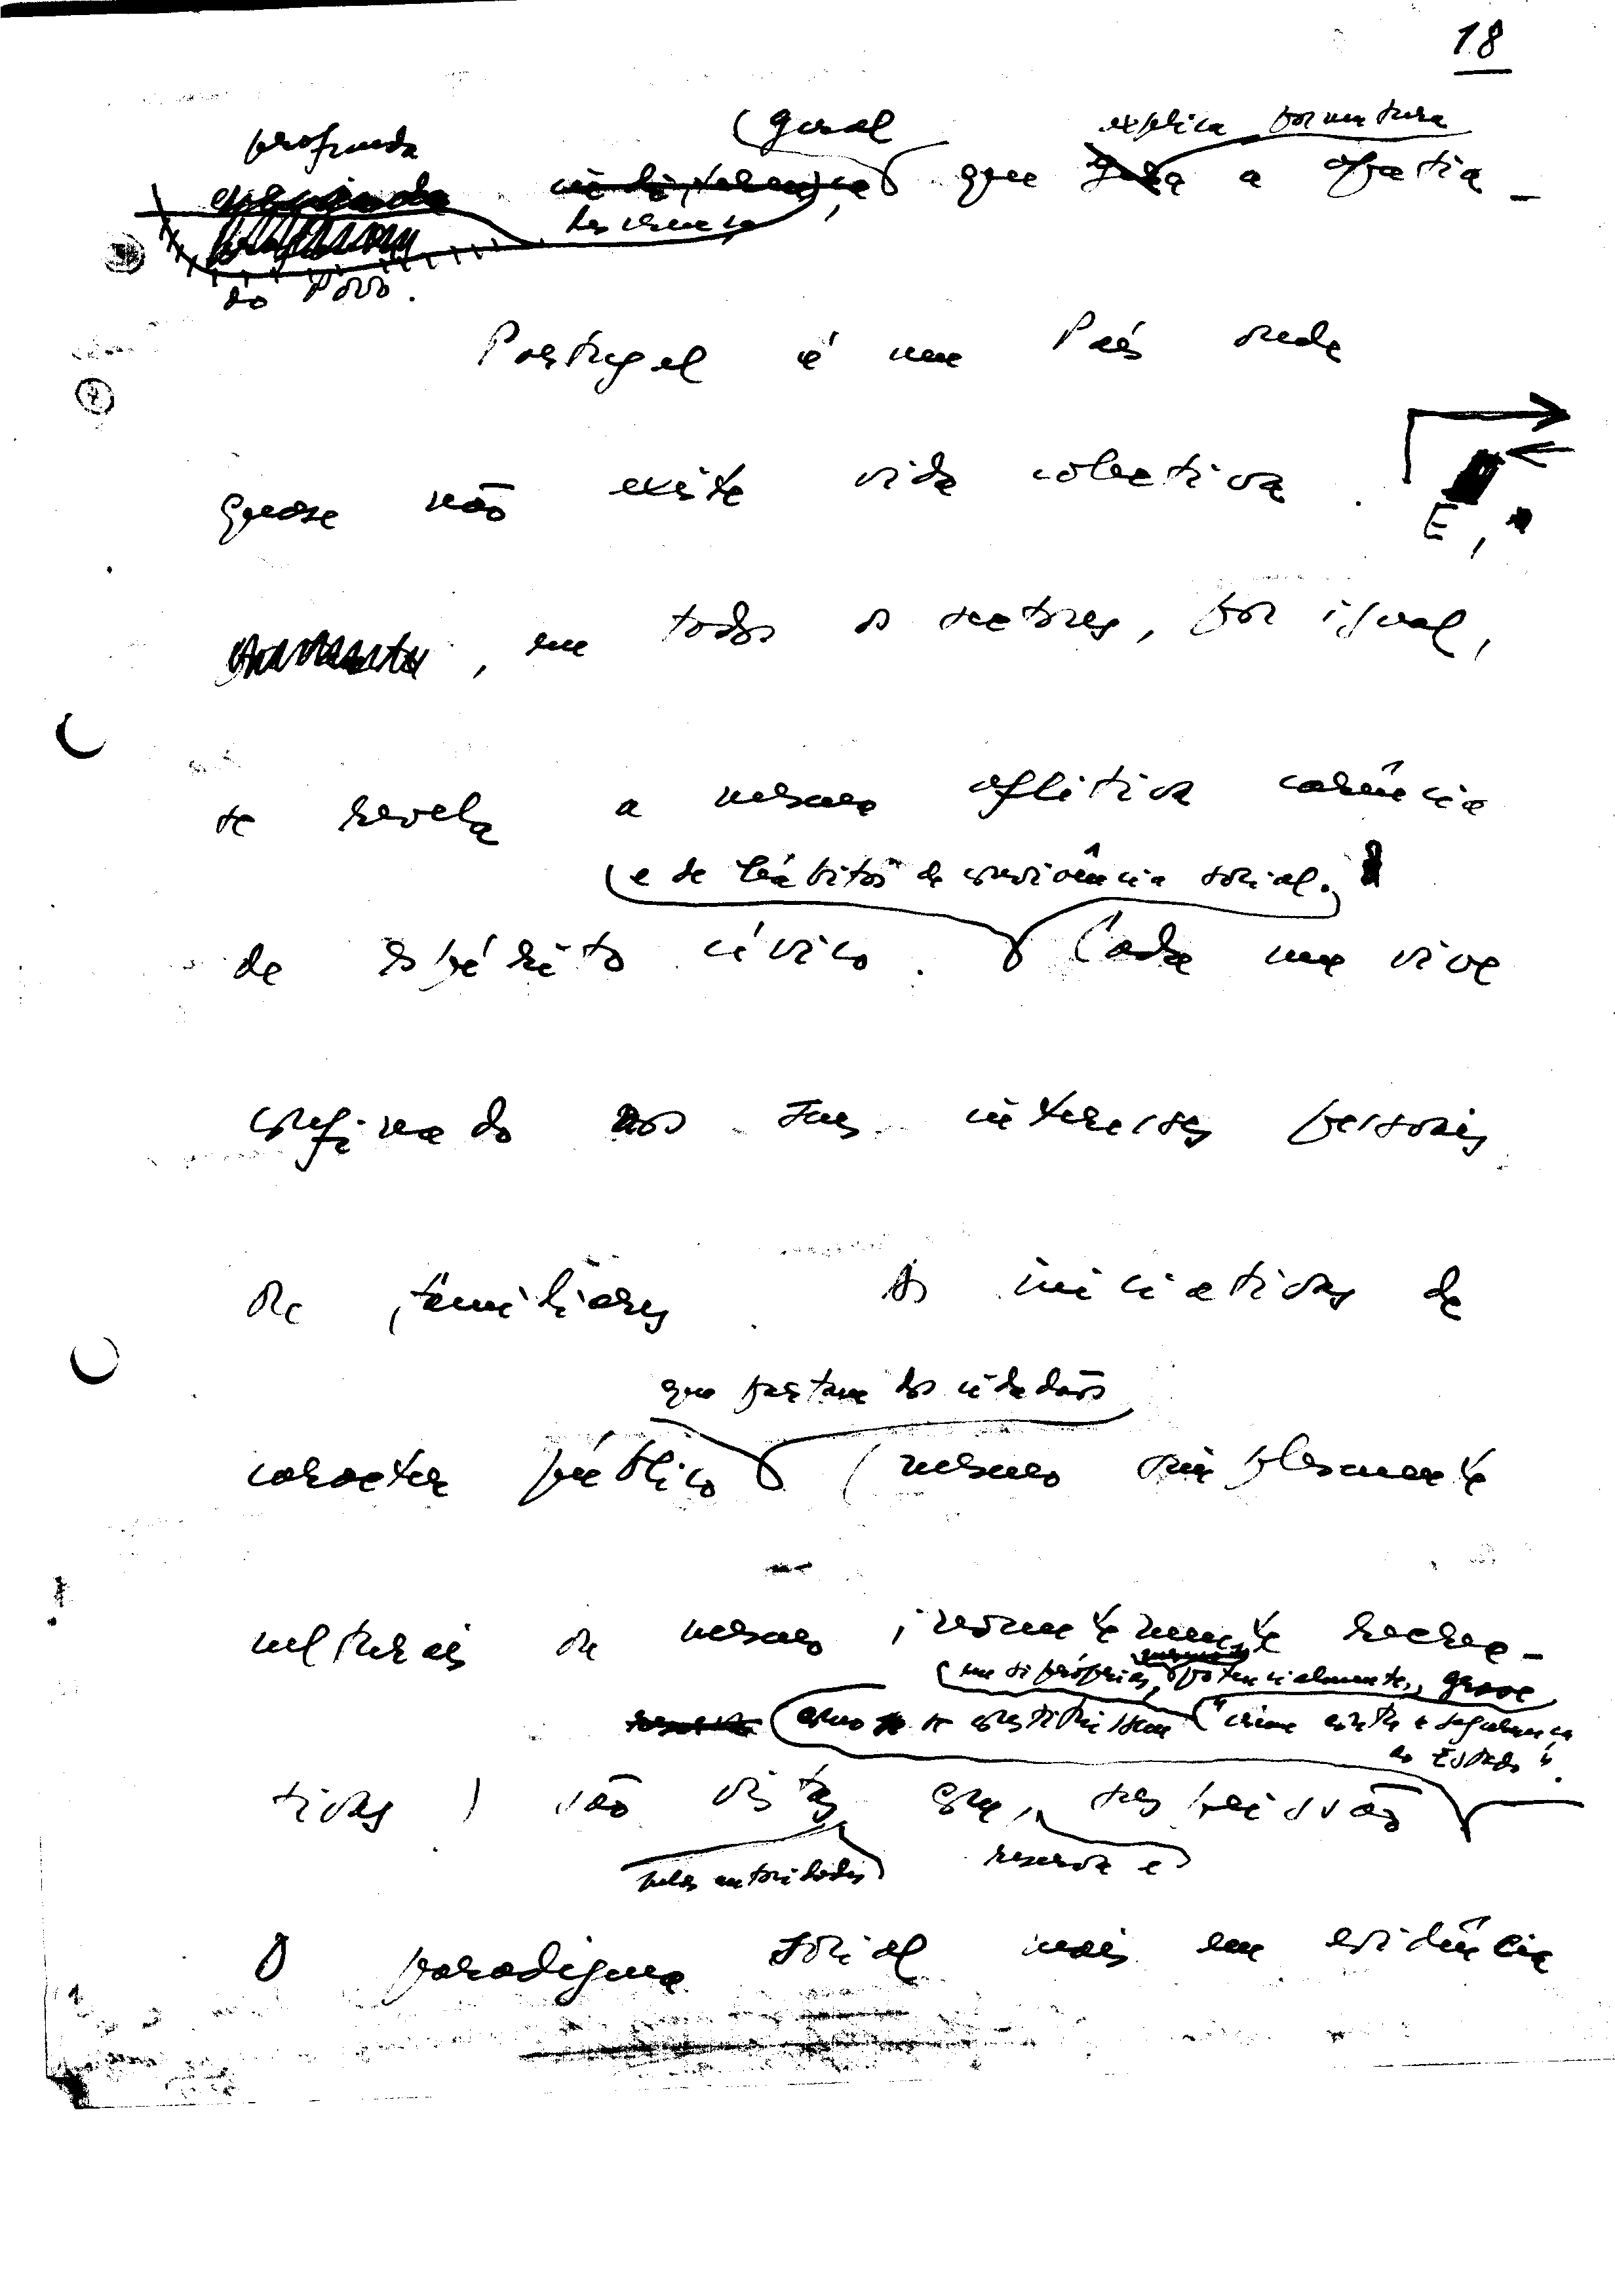 18
profunda (geral explica porventura
descrença, que gera a apatia
do Povo.
Portugal é um País onde
quase não existe vida colectiva.
E,
, em todos os sectores, por igual,
se revela a mesma aflitiva carência
(e de hábitos de convivência social.
de espírito cívico. Cada um vive
confinado aos seus interesses pessoais
ou familiares. As iniciativas de
que partam dos cidadãos
caracter público (mesmo simplesmente
culturais ou mesmo inocentemente recrea-
(em si próprias, potencialmente, grave
como se constituissem "crime contra a segurança
do Estado".
tivas) são vistas com suspeição
pelas autoridades reserva e
O paradigma social mais em evidência